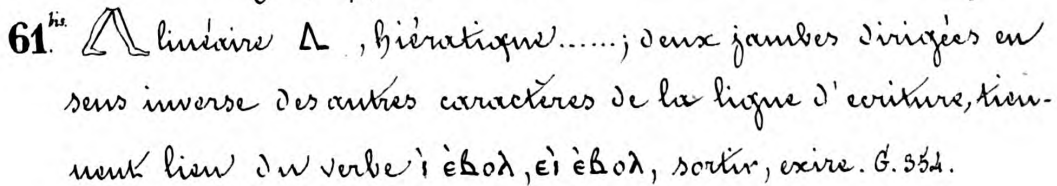 61.bis. 𓂽 linéaire 𐊍 , hiératique......; deux jambes dirigées en
sens inverse des autres caractères de la ligne d'ecriture, tien-
nent lieu du verbe ⲓ̀ ⲉ̀ⲃⲟⲗ, ⲉⲓ̀ ⲉ̀ⲃⲟⲗ, sortir, exire. G. 354.